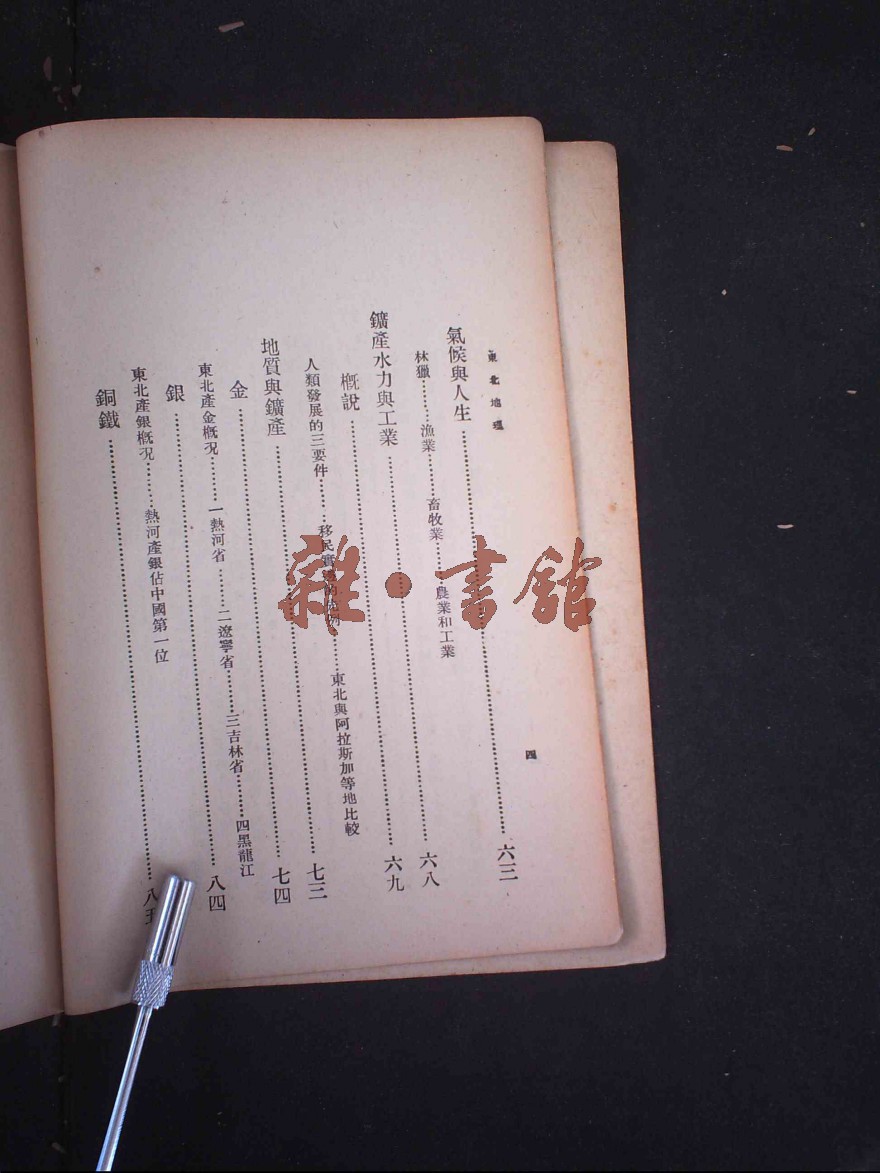 東北地理
四
氣候與人生……六三
林獵……漁業……畜牧業……農業和工業
鑛產水力與工業……六八
概說……六九
人類發展的三要件……移民實邊……東北與阿拉斯加等地比較
地質與鑛產……七三
金……七四
東北產金概况……一熱河省……二遼寧省……三吉林省……四黑龍江
銀……八四
東北產銀概况……熱河產銀佔中國第一位
銅鐵……八五
雜·書館